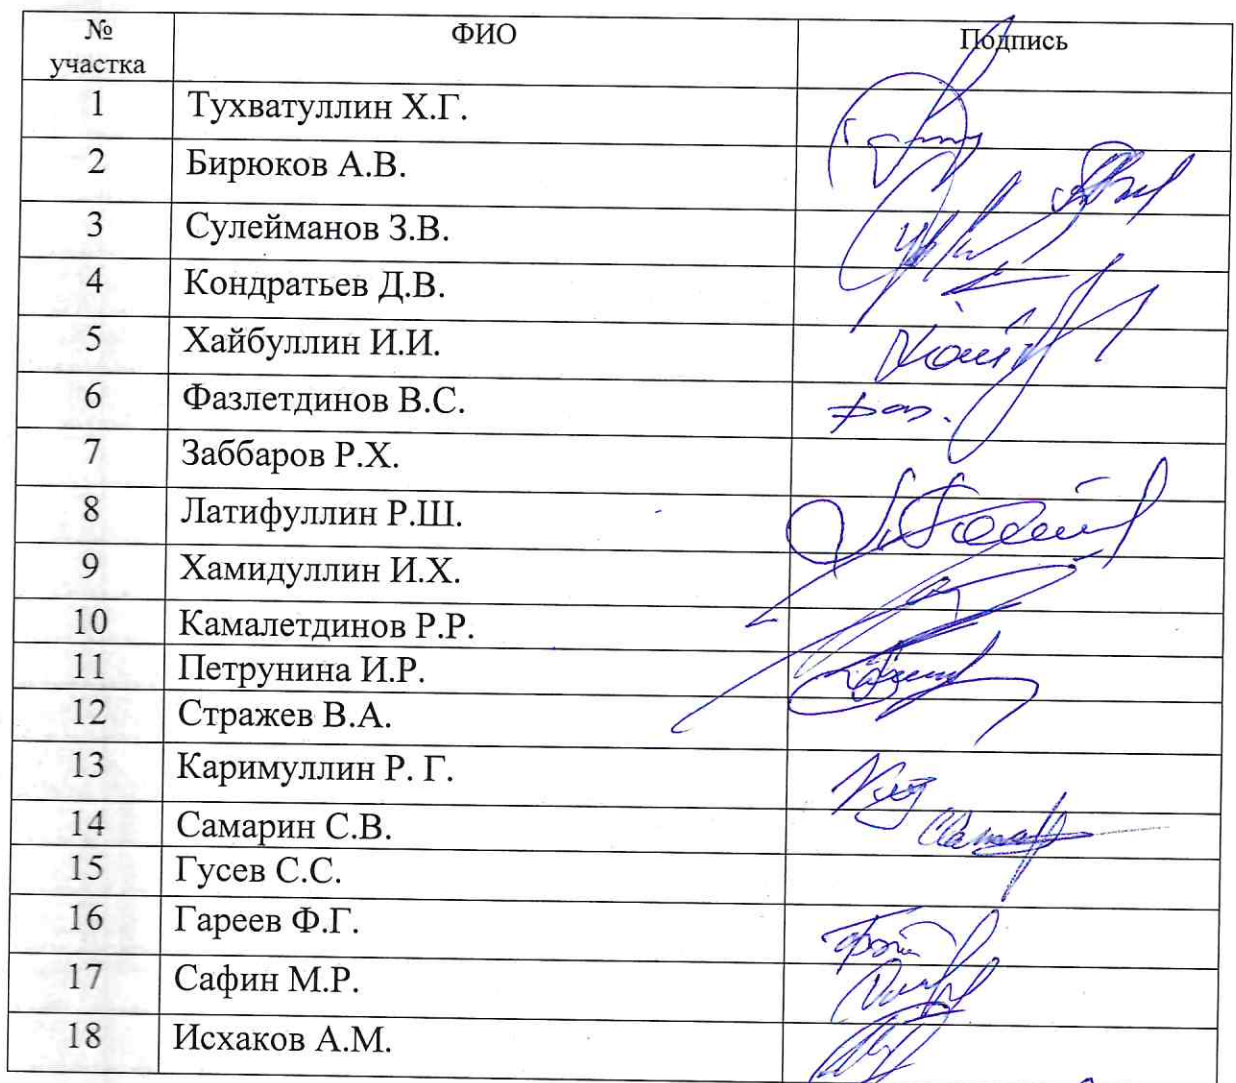 № участка ФИО Подпись
1 Тухватуллин Х.Г.
2 Бирюков А.В.
3 Сулейманов З.В.
4 Кондратьев Д.В.
5 Хайбуллин И.И.
6 Фазлетдинов В.С.
7 Заббаров Р.Х.
8 Латифуллин Р.Ш.
9 Хамидуллин И.Х.
10 Камалетдинов Р.Р.
11 Петрунина И.Р.
12 Стражев В.А.
13 Каримуллин Р. Г.
14 Самарин С.В.
15 Гусев С.С.
16 Гареев Ф.Г.
17 Сафин М.Р.
18 Исхаков А.М.